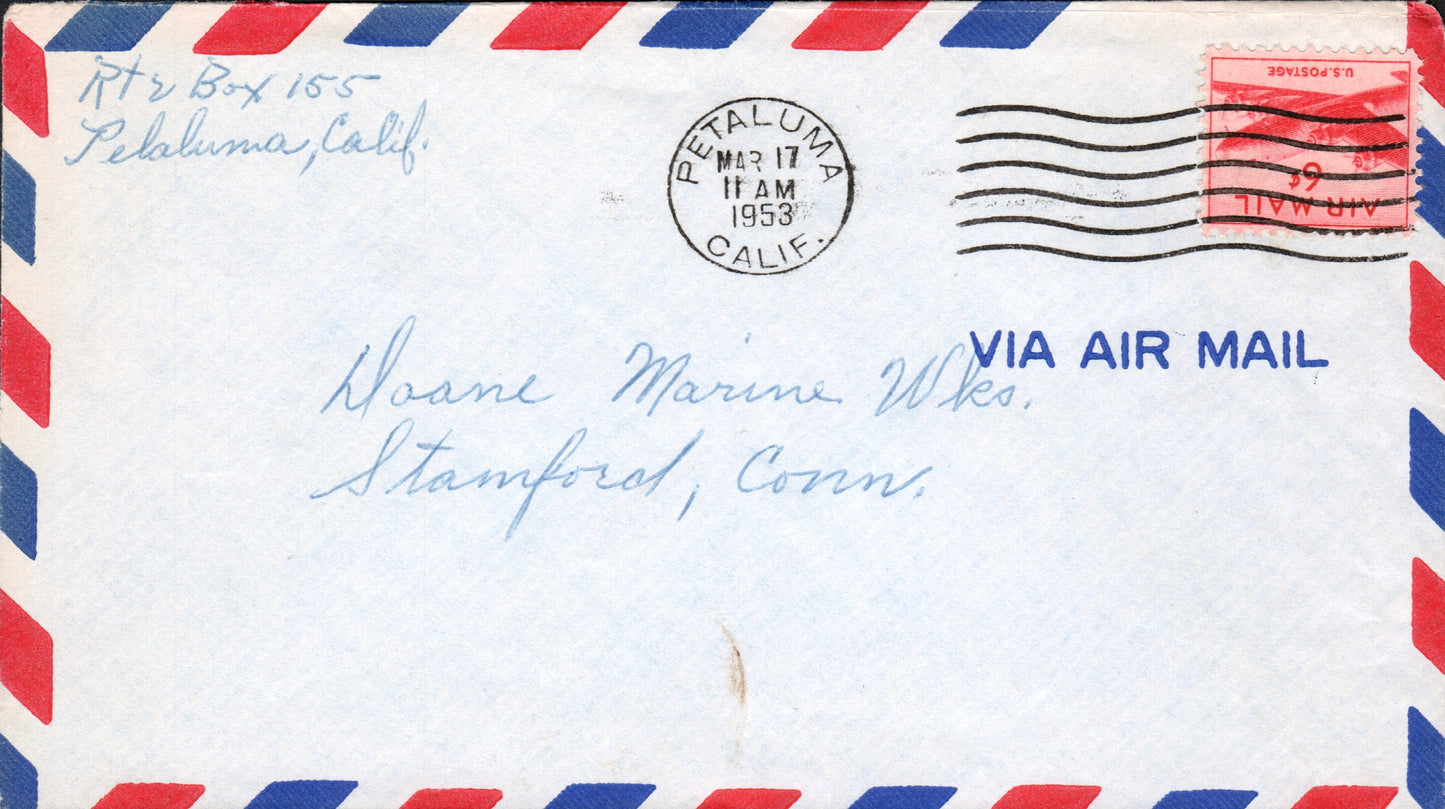 Rt 2 Box 155
Petaluma, Calif.
PETALUMA
MAR 17
11 AM
1953
CALIF.
U.S. POSTAGE
6¢
AIR MAIL
VIA AIR MAIL
Doane Marine Wks.
Stamford, Conn.